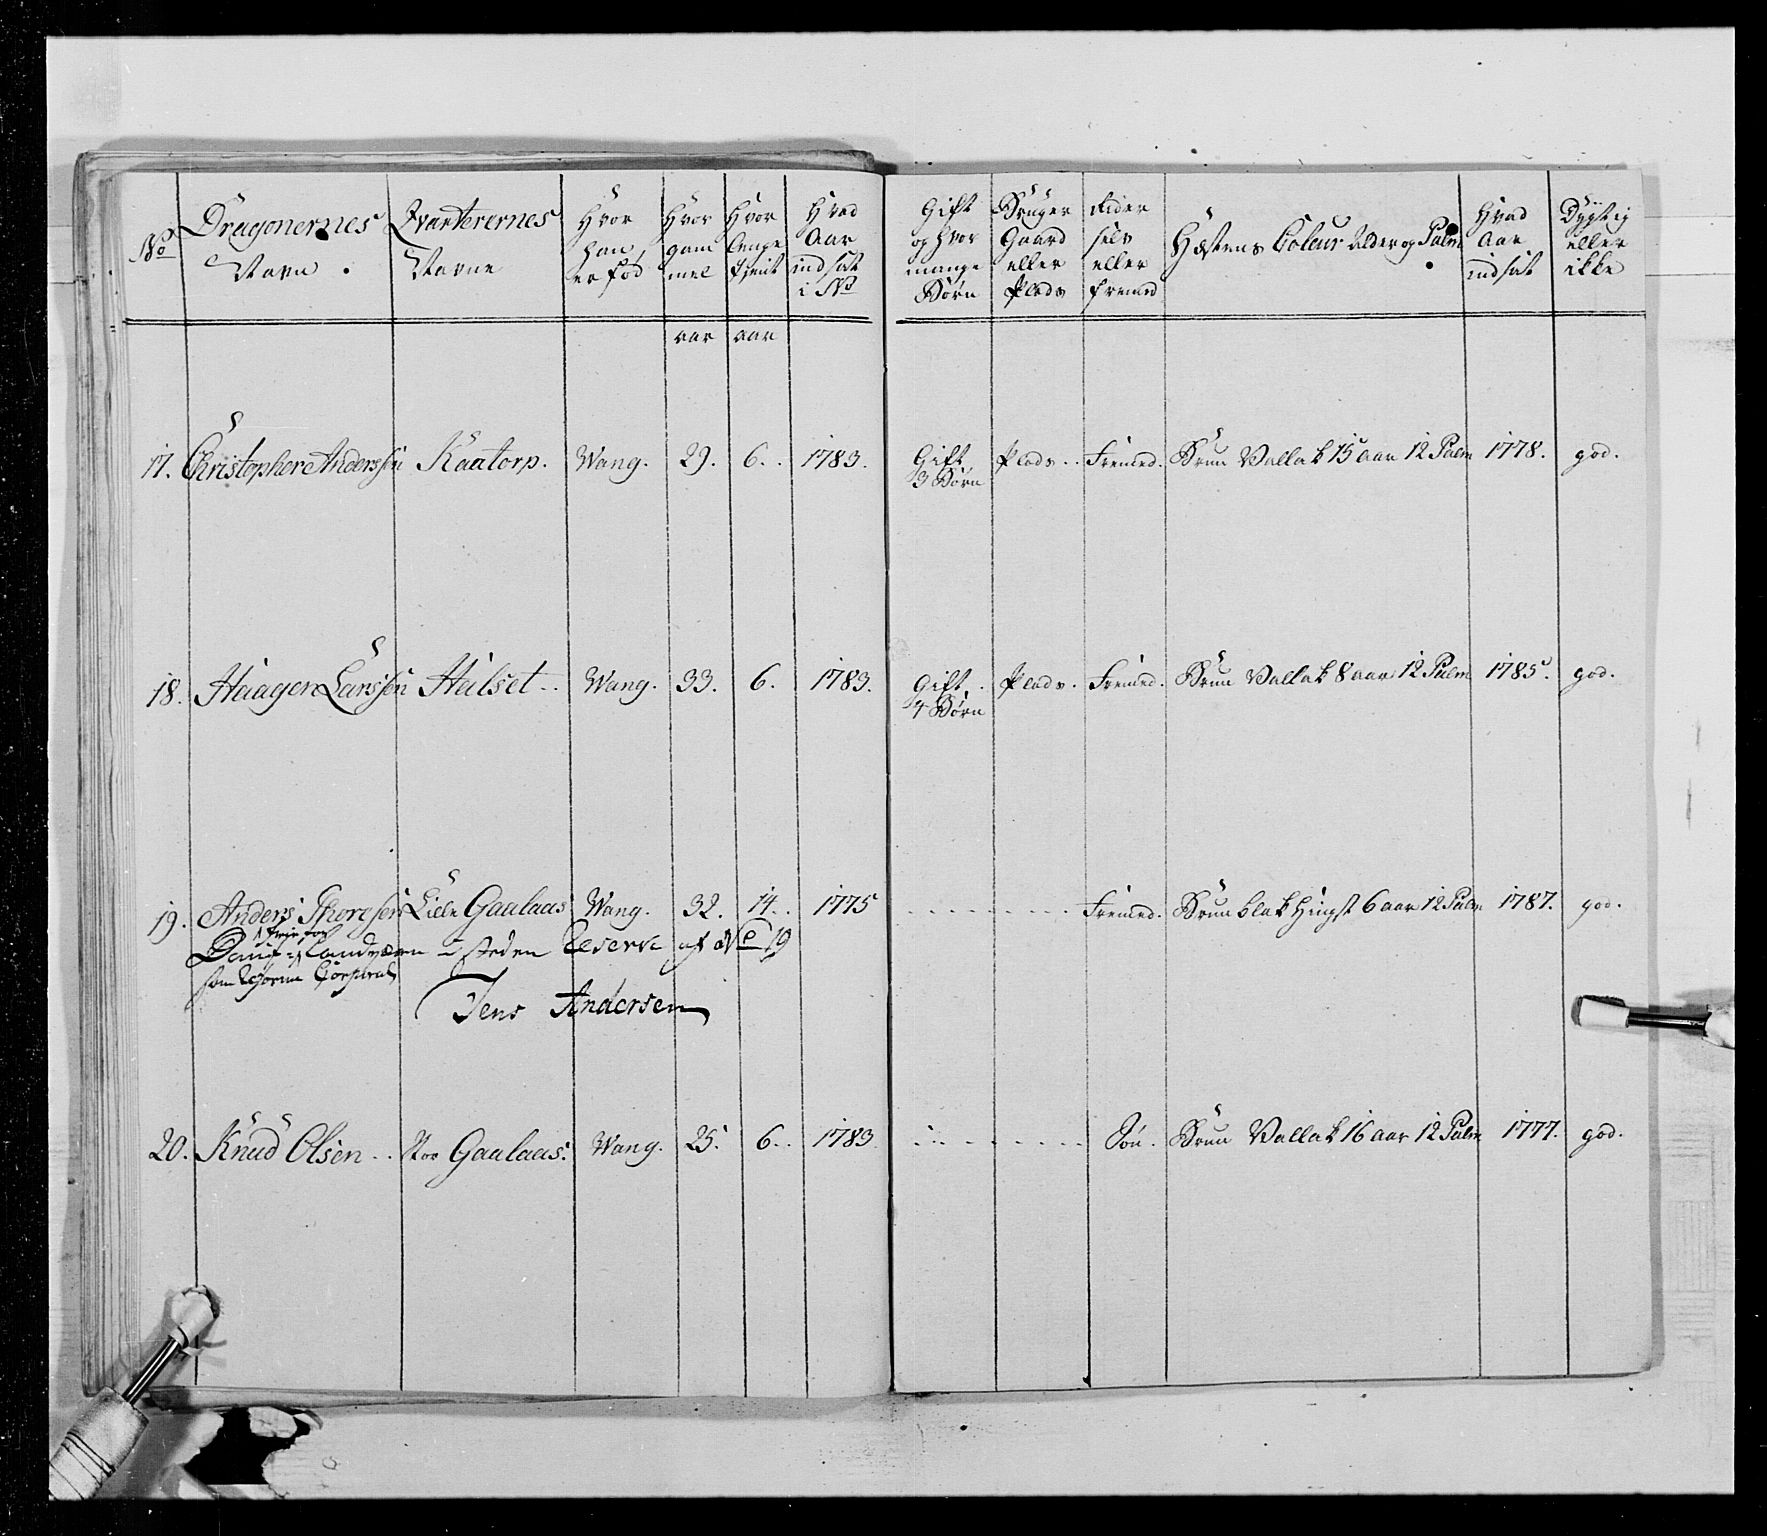 No
Dragonernes Navn
Qvarterernes Navne
Hvor han er fød
Hvor gam mel
Hvor lenge tjent
Hvad Aar indsat i No
Gift og hvor mange Børn
Bruger Gaard eller Plads
Rider selv eller fremed
Hæstens Coleur Alder og Palm
Hvad Aar indsat
Dygtig eller ikke
aar aar
17. Christopher Anderssen Kaatorp. Wang. 29. 6. 1783. Gift 3 Børn Plads. Fremed. Brun Vallak 15 aar 12 Palm 1778. god.
18. Haagen Larssen Hulset. Wang. 33. 6. 1783. Gift 4 Børn Plads. Fremed. Brun Vallak 8 aar 12 Palm 1785. god.
19. Anders Thoresen Lille Gaalaas Wang. 32. 14. 1775 Fremed. Brun blak Hingst 6 aar 12 Palm 1787. god.
i steden Reserve af No 19
Jens Andersen
20. Knud Olsen Stor Gaalaas. Wang. 25. 6. 1783 Søn. Brun Vallak 16 aar 12 Palm 1777. god.